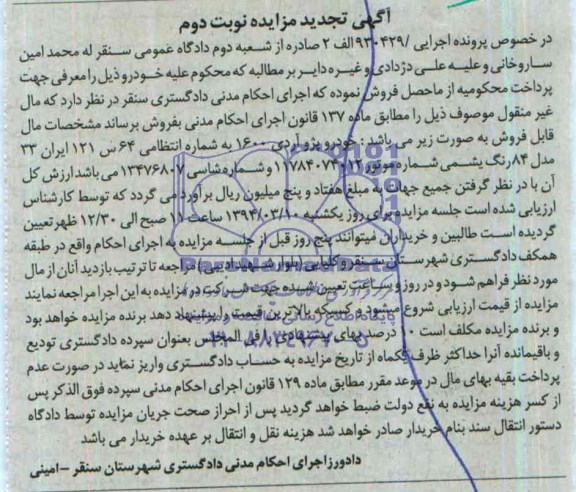 آگهی تجدید مزایده نوبت دوم
در خصوص پرونده اجرایی /۹۳۰۴۲۹ الف ۲ صادره از شعبه دوم دادگاه عمومی سنقر له محمد امین
ساروخانی و علیه علی دژدادی و غیره دایر بر مطالبه که محکوم علیه خودرو ذیل را معرفی جهت
پرداخت محکومیه از ماحصل فروش نموده که اجرای احکام مدنی دادگستری سنقر در نظر دارد که مال
غیر منقول موصوف ذیل را مطابق ماده ۱۳۷ قانون اجرای احکام مدنی بفروش برساند مشخصات مال
قابل فروش به صورت زیر می باشد: خودرو پژو آردی ۱۶۰۰ به شماره انتظامی ۶۴س ۱۲۱ ایران ۳۳
مدل ۸۴ رنگ یشمی شماره موتور ۱۱۷۸۴۰۷۴۰۱۲ و شماره شاسی ۱۳۴۷۶۸۰۷ می باشد ارزش کل
آن با در نظر گرفتن جمیع جهات به مبلغ هفتاد و پنج میلیون ریال برآورد می گردد که توسط کارشناس
ارزیابی شده است جلسه مزایده برای روز یکشنبه ۱۳۹۴/۰۳/۱۰ ساعت ۱۱ صبح الی ۱۲/۳۰ ظهر تعیین
گردیده است طالبین و خریداران میتوانند پنج روز قبل از جلسه مزایده به اجرای احکام واقع در طبقه
همکف دادگستری شهرستان سنقر و کلیایی (بلوار شهید ادیبی) مراجعه تا ترتیب بازدید آنان از مال
مورد نظر فراهم شود و در روز و ساعت تعیین شده جهت شرکت در مزایده به این اجرا مراجعه نمایند
مزایده از قیمت ارزیابی شروع میشود و کسیکه بالاترین قیمت را پیشنهاد دهد برنده مزایده خواهد بود
و برنده مزایده مکلف است ۱۰ درصد بهای پیشنهادی را فی المجلس بعنوان سپرده دادگستری تودیع
و باقیمانده آنرا حداکثر ظرف یکماه از تاریخ مزایده به حساب دادگستری واریز نماید در صورت عدم
پرداخت بقیه بهای مال در موعد مقرر مطابق ماده ۱۲۹ قانون اجرای احکام مدنی سپرده فوق الذکر پس
از کسر هزینه مزایده به نفع دولت ضبط خواهد گردید پس از احراز صحت جریان مزایده توسط دادگاه
دستور انتقال سند بنام خریدار صادر خواهد شد هزینه نقل و انتقال بر عهده خریدار می باشد
دادورز اجرای احکام مدنی دادگستری شهرستان سنقر –امینی